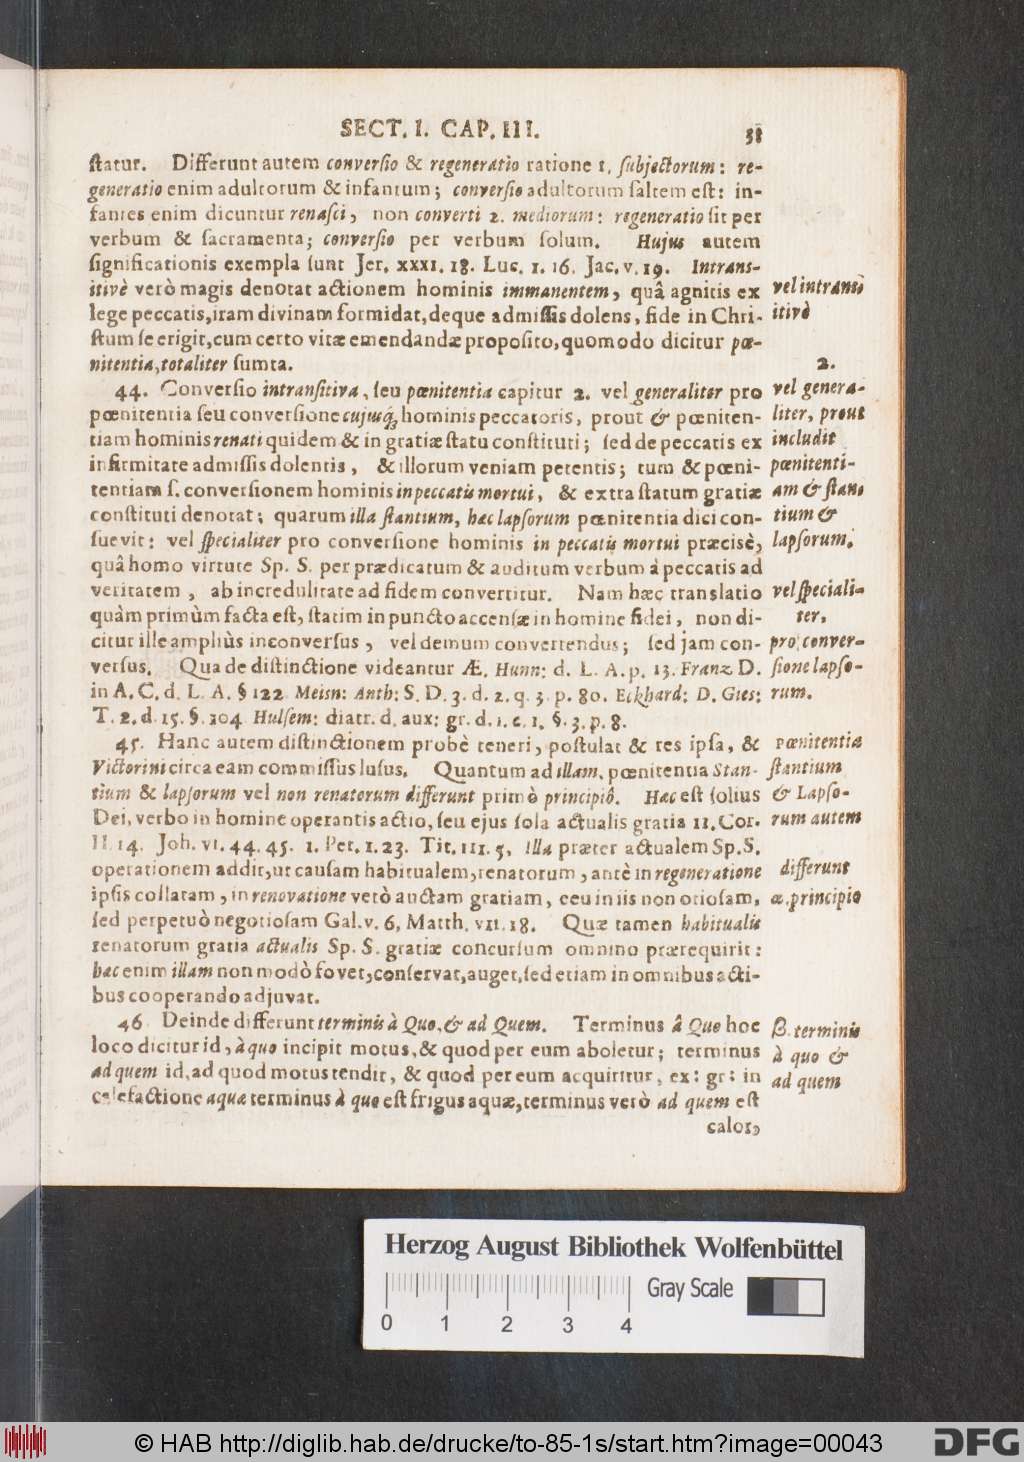 SECT. I. CAP. III. 31
ſtatur. Differunt autem converſio & regeneratio ratione 1. ſubjectorum: re-
generatio enim adultorum & infantum; converſio adultorum ſaltem eſt: in-
fantes enim dicuntur renaſci, non converti 2. mediorum: regeneratio fit per
verbum & ſacramenta; converſio per verbum ſolum. Hujus autem
ſignificationis exempla ſunt Jer. XXXI. 18. Luc. 1. 16. Jac. v. 19. Intranſ-
itivè verò magis denotat actionem hominis immanentem, quâ agnitis ex
lege peccatis, iram divinam formidat, deque admiſſis dolens, fide in Chri-
ſtum ſe erigit, cum certo vitæ emendandæ propoſito, quomodo dicitur pœ-
nitentia, totaliter ſumta.
vel intransi
itivè
44. Converſio intranſitiva, ſeu pœnitentia capitur 2. vel generaliter pro
pœnitentia ſeu converſione cujuſq; hominis peccatoris, prout & pœniten-
tiam hominis renati quidem & in gratiæ ſtatu conſtituti; ſed de peccatis ex
infirmitate admiſſis dolentis, & illorum veniam petentis; tum & pœni-
tentiam ſ. converſionem hominis in peccatis mortui, & extra ſtatum gratiæ
conſtituti denotat; quarum illa ſtantium, hæc lapſorum pœnitentia dici con-
ſuevit: vel ſpecialiter pro converſione hominis in peccatis mortui præcisè,
quâ homo virtute Sp. S. per prædicatum & auditum verbum à peccatis ad
veritatem, ab incredulitate ad fidem convertitur. Nam hæc translatio
quàm primùm facta eſt, ſtatim in puncto accenſæ in homine fidei, non di-
citur ille ampliùs inconverſus, vel demum convertendus; ſed jam con-
verſus. Qua de diſtinctione videantur Æ. Hunn: d. L. A. p. 13. Franz. D.
in A. C. d. L. A. § 122 Meisn: Anth: S. D. 3. d. 2. q. 3. p. 80. Eckhard: D. Gies:
T. 2. d. 15. §. 104 Hulſem: diatr. d. aux: gr. d. 1. c. 1. §. 3. p. 8.
2.
vel genera-
liter, prout
includit
pœnitenti-
am & ſtan-
tium &
lapſorum.
vel ſpeciali-
ter.
pro conver-
ſione lapſo-
rum.
45. Hanc autem diſtinctionem probè teneri, poſtulat & res ipſa, &
Victorini circa eam commiſſus luſus. Quantum ad illam, pœnitentia Stan-
tium & lapſorum vel non renatorum differunt primò principiô. Hæc eſt ſolius
Dei, verbo in homine operantis actio, ſeu ejus ſola actualis gratia 11. Cor.
II. 14. Joh. VI. 44. 45. 1. Pet. 1. 23. Tit. III. 5. Illa præter actualem Sp. S.
operationem addit, ut cauſam habitualem, renatorum, antè in regeneratione
ipſis collatam, in renovatione verò auctam gratiam, ceu in iis non otioſam,
ſed perpetuò negotioſam Gal. v. 6. Matth. VII. 18. Quæ tamen habitualis
renatorum gratia actualis Sp. S. gratiæ concurſum omnino prærequirit:
hæc enim illam non modò fovet, conſervat, auget, ſed etiam in omnibus acti-
bus cooperando adjuvat.
Pœnitentia
ſtantium
& Lapſo-
rum autem
differunt
α. principio
46 Deinde differunt terminis à Quo, & ad Quem. Terminus â Quo hoc
loco dicitur id, à quo incipit motus, & quod per eum aboletur; terminus
ad quem id, ad quod motus tendit, & quod per eum acquiritur, ex: gr: in
calefactione aquæ terminus à quo eſt frigus aquæ, terminus verò ad quem eſt
calor,
β. terminis
à quo &
ad quem
Herzog August Bibliothek Wolfenbüttel
Gray Scale
0 1 2 3 4
© HAB http://diglib.hab.de/drucke/to-85-1s/start.htm?image=00043
DFG